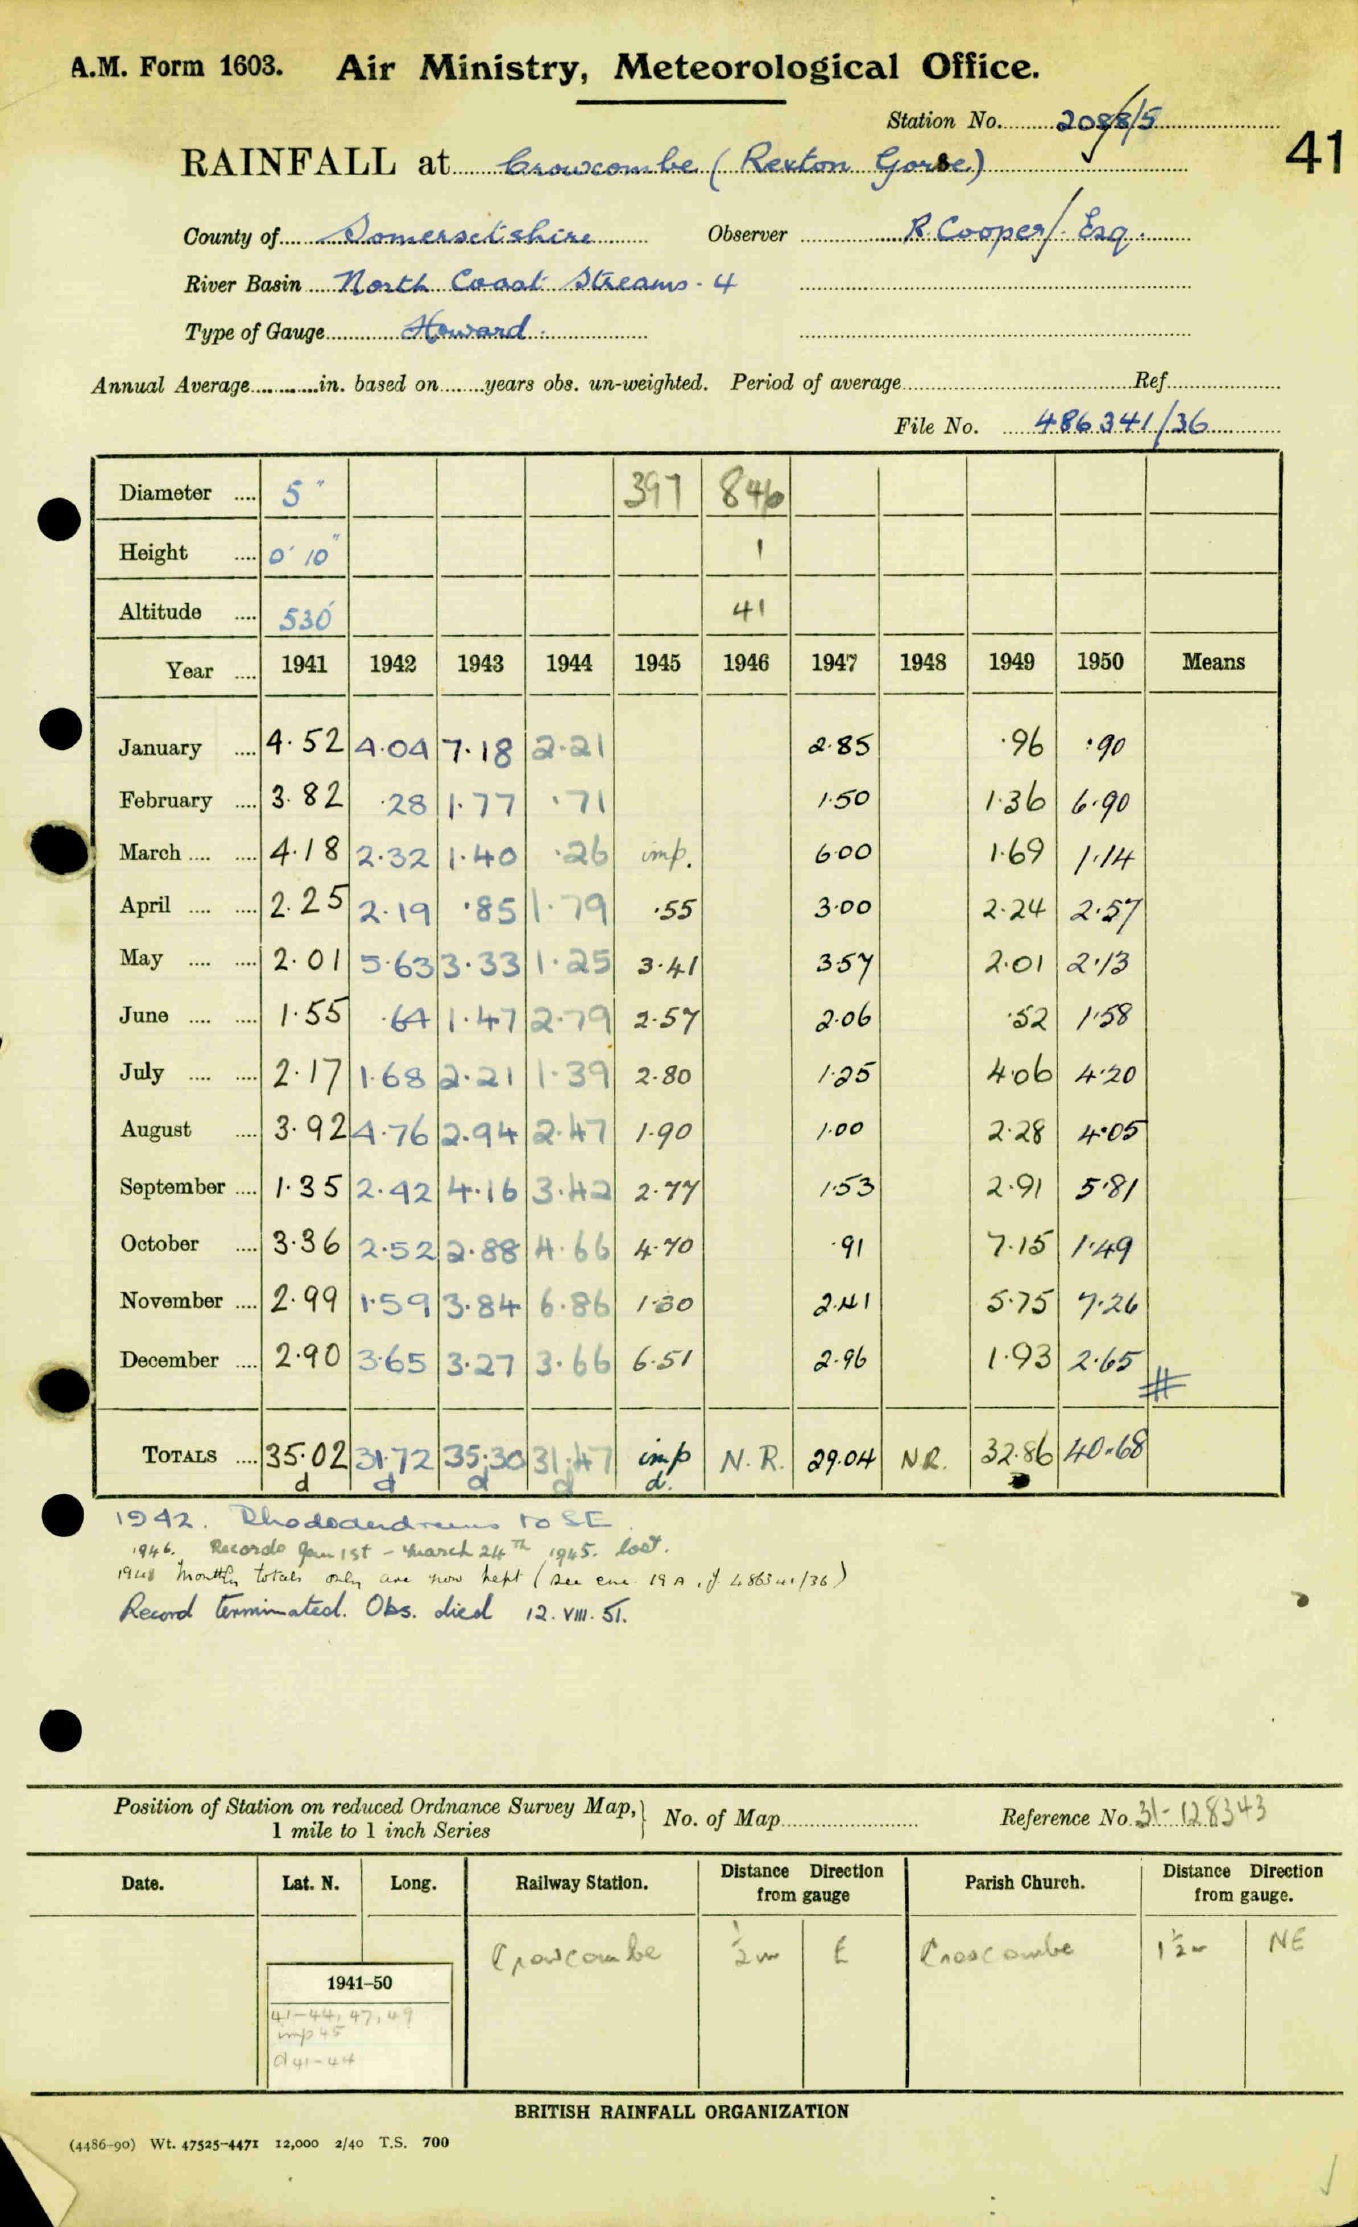 A.M. Form 1603. Air Ministry, Meteorological Office.
Station No. 2088/5
41
RAINFALL at Crowcombe (Rexton Gorse)
County of Somersetshire Observer R. Cooper, Esq.
River Basin North Coast Streams - 4
Type of Gauge Howard.
Annual Average in. based on years obs. un-weighted. Period of average Ref
File No. 486341/36
Diameter .... 5" 397 846
Height .... 0' 10" 1
Altitude .... 530' 41
Year .... 1941 1942 1943 1944 1945 1946 1947 1948 1949 1950 Means
January .... 4.52 4.04 7.18 2.21 2.85 .96 .90
February .... 3.82 .28 1.77 .71 1.50 1.36 6.90
March .... .... 4.18 2.32 1.40 .26 imp. 6.00 1.69 1.14
April .... .... 2.25 2.19 .85 1.79 .55 3.00 2.24 2.57
May .... .... 2.01 5.63 3.33 1.25 3.41 3.57 2.01 2.13
June .... .... 1.55 .64 1.47 2.79 2.57 2.06 .52 1.58
July .... .... 2.17 1.68 2.21 1.39 2.80 1.25 4.06 4.20
August .... 3.92 4.76 2.94 2.47 1.90 1.00 2.28 4.05
September .... 1.35 2.42 4.16 3.42 2.77 1.53 2.91 5.81
October .... 3.36 2.52 2.88 4.66 4.70 .91 7.15 1.49
November .... 2.99 1.59 3.84 6.86 1.30 2.41 5.75 7.26
December .... 2.90 3.65 3.27 3.66 6.51 2.96 1.93 2.65
#
TOTALS .... 35.02 31.72 35.30 31.47 imp N.R. 29.04 N.R. 32.86 40.68
d d d d d.
1942. Rhododendrums to SE.
1946. Records Jan 1st - March 24th 1945. lost.
1948 Monthly totals only are now kept (see enc. 19A, f. 486341/36)
Record terminated. Obs. died 12. VIII. 51.
Position of Station on reduced Ordnance Survey Map, 1 mile to 1 inch Series } No. of Map Reference No. 31-128343
Date. Lat. N. Long. Railway Station. Distance Direction from gauge Parish Church. Distance Direction from gauge.
Crowcombe ½ m E Crowcombe 1½ m NE
1941-50
41-44, 47, 49
imp 45
d 41-44
BRITISH RAINFALL ORGANIZATION
(4486-90) Wt. 47525-4471 12,000 2/40 T.S. 700